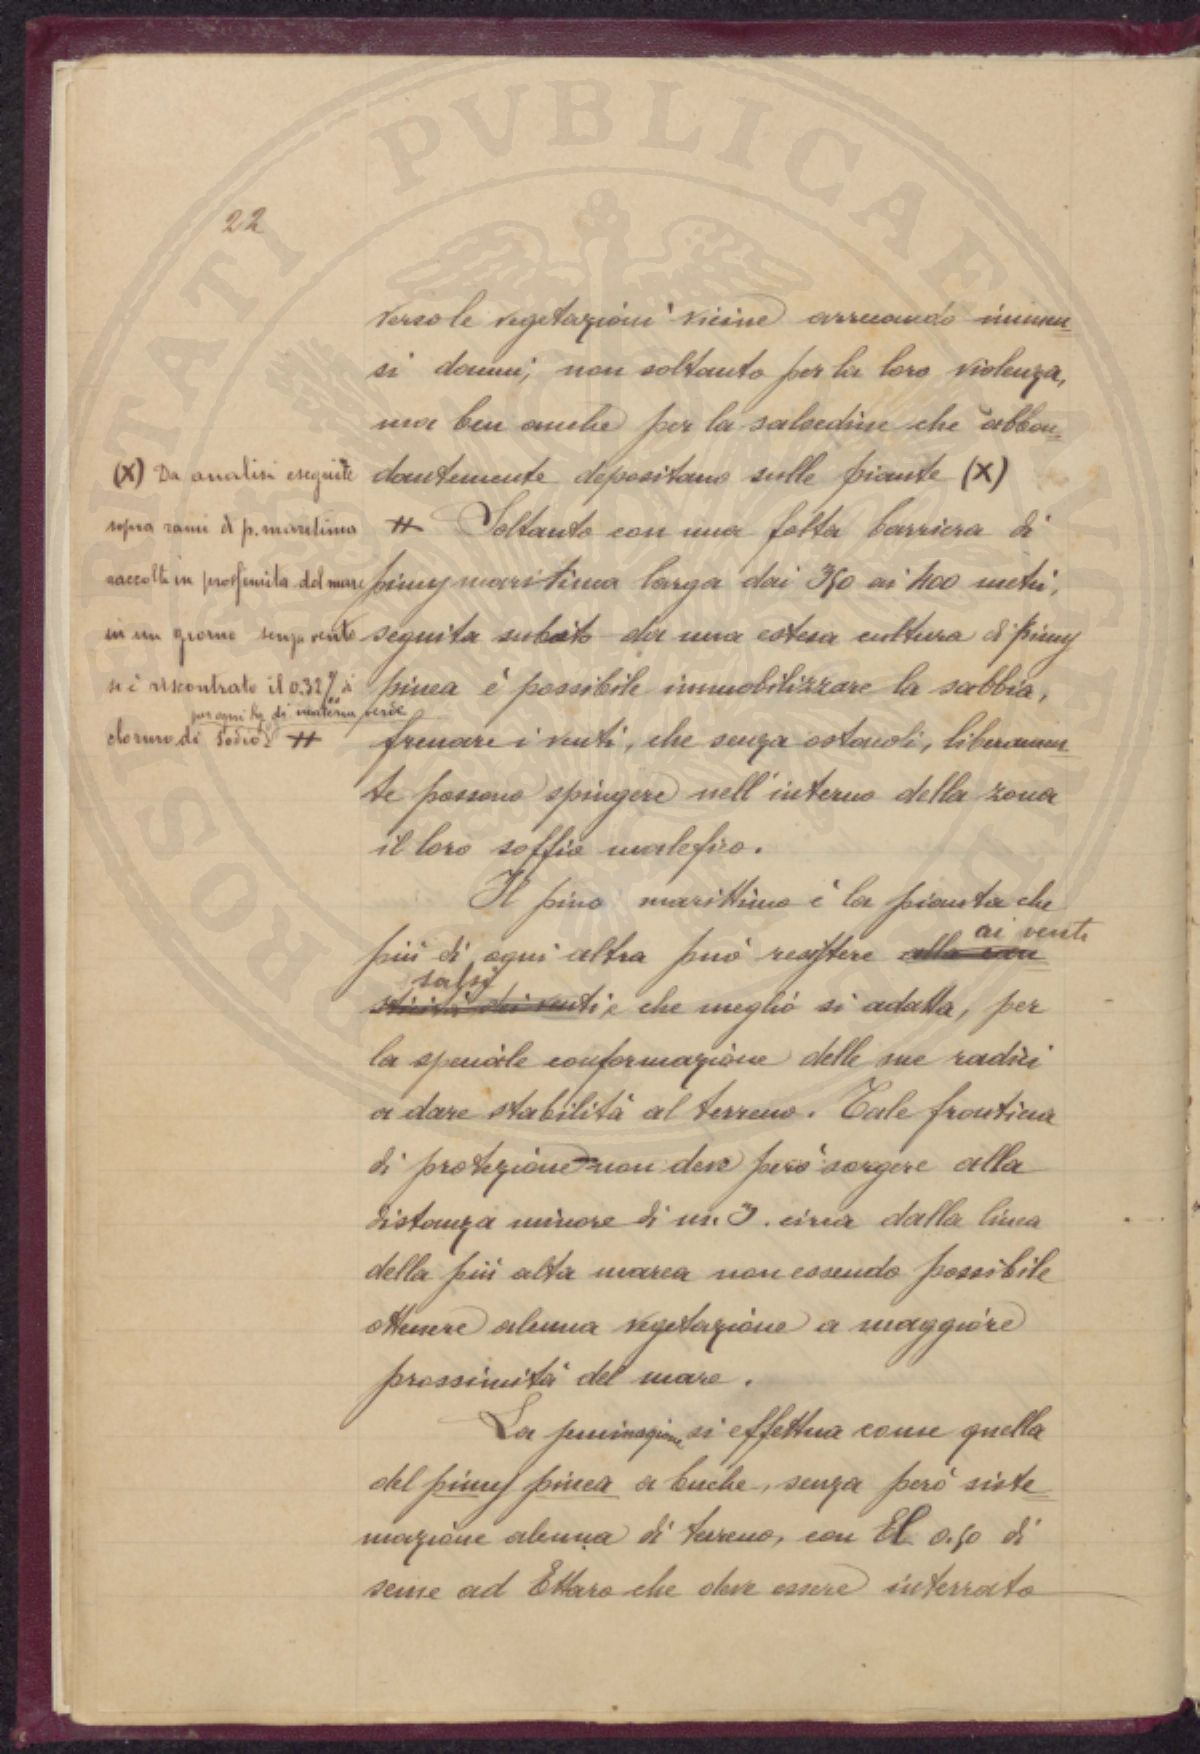 22
verso le vegetazioni vicine arrecando immen=
si danni, non soltanto per la loro violenza,
ma ben anche per la salsedine che abbon=
dantemente depositano sulle piante (X)
# Soltanto con una folta barriera di
pinus maritima larga dai 350 ai 400 metri,
seguita subito da una estesa cultura di pinus
pinea è possibile immobilizzare la sabbia,
frenare i venti, che senza ostacoli, liberamen=
te possono spingere nell'interno della zona
il loro soffio malefico.
Il pino marittimo è la pianta che
ai venti
più di ogni altra può resistere alla cau
salsi
sticità dei venti e che meglio si adatta, per
la speciale conformazione delle sue radici
a dare stabilità al terreno. Tale frontiera
di protezione non deve però sorgere alla
distanza minore di m. 3. circa dalla linea
della più alta marea non essendo possibile
ottenere alcuna vegetazione a maggiore
prossimità del mare.
La seminagione si effettua come quella
del pinus pinea a buche, senza però siste=
mazione alcuna di terreno, con El. 0.50 di
seme ad Ettaro che deve essere interrato
(X) Da analisi eseguite
sopra rami di p. maritima
raccolti in prossimità del mare
in un giorno senza vento
si è riscontrato il 0.32% di
per ogni kg di materia verde
cloruro di sodio #
ROSPERITATI PVBLICAE AVGENDAE